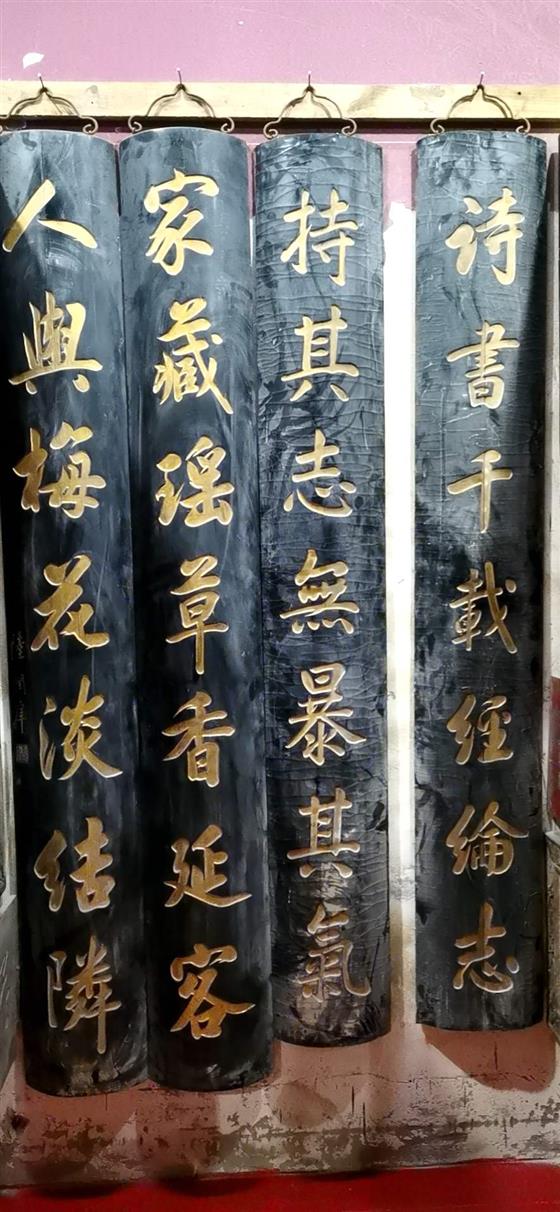 詩書千載經綸志
持其志無暴其氣
家藏瑶草香延客
人與梅花淡結隣